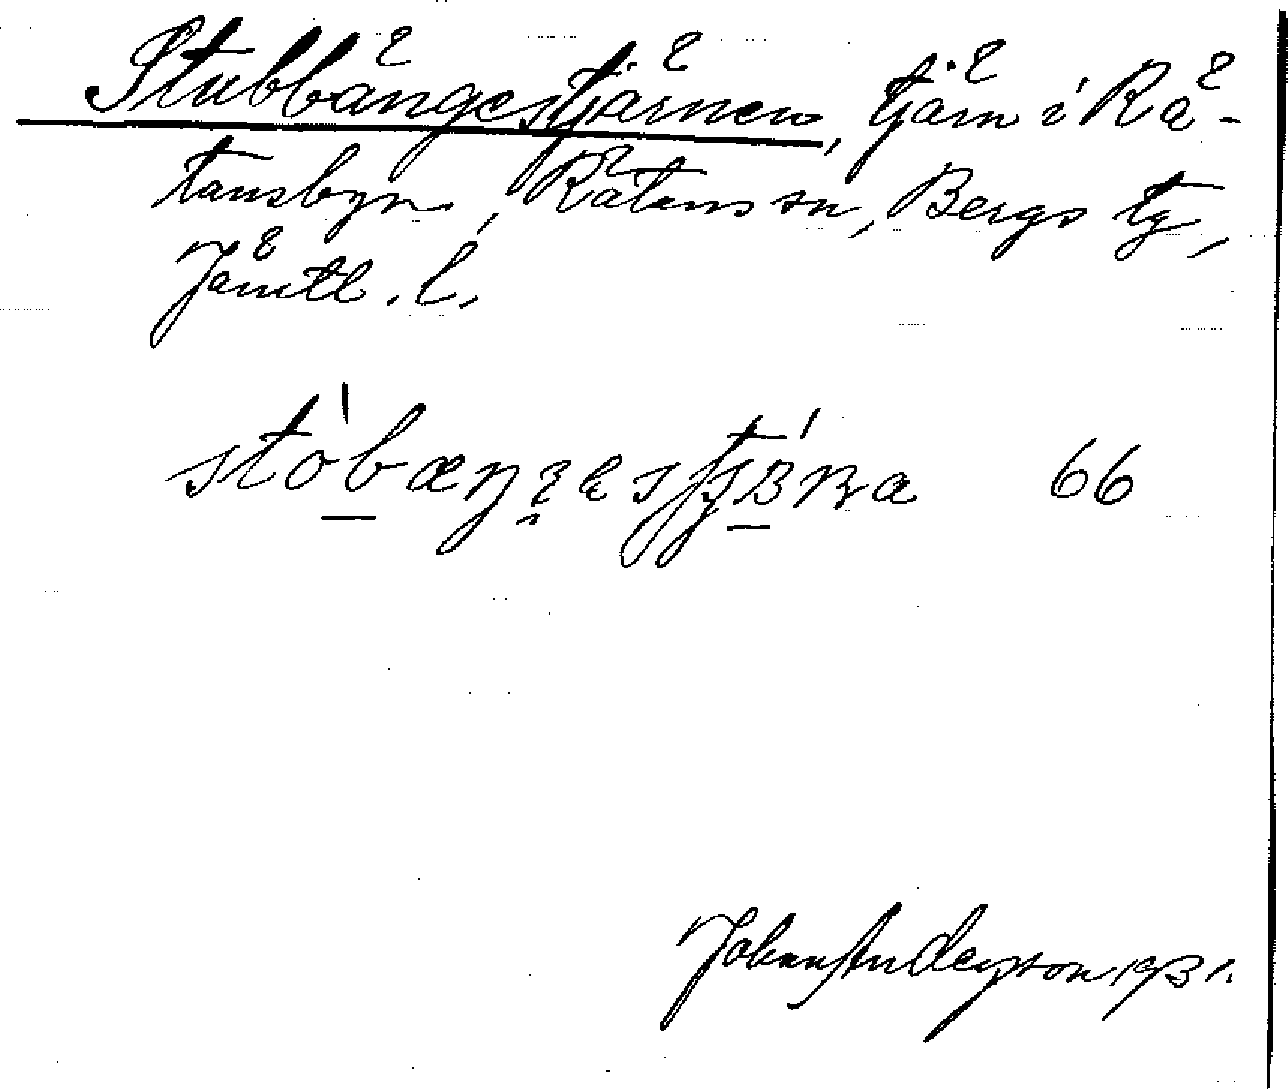 Stubbängestjärnen, tjärn i Rä-
tansbyn, Rätans sn, Bergs tg,
Jämtl. l.
66
Johan Anderson 1931.